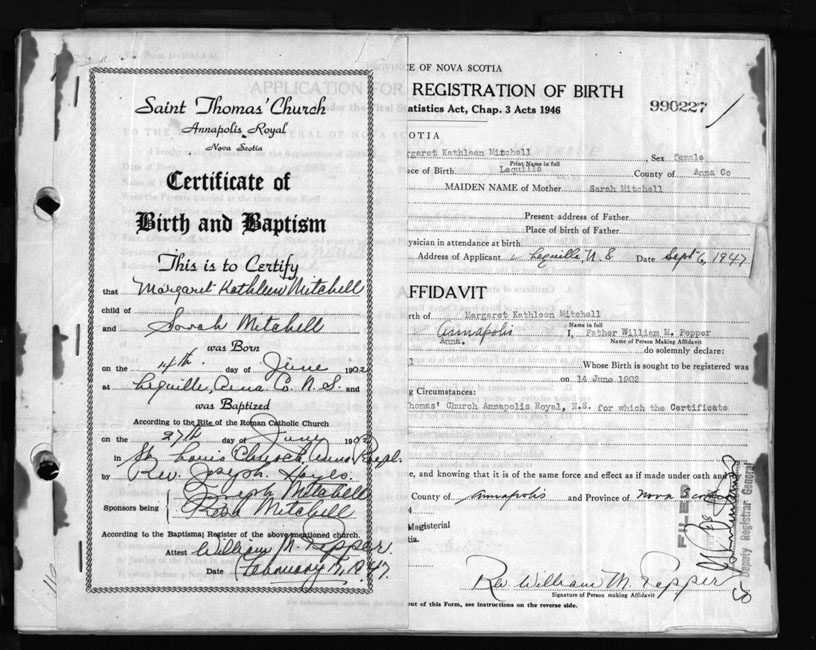 Saint Thomas' Church
Annapolis Royal
Nova Scotia
Certificate of
Birth and Baptism
This is to Certify
that Margaret Kathleen Mitchell
child of
and Sarah Mitchell
was Born
on the 14th. day of June 1902
at Lequille, Anna Co. N.S. and
was Baptized
According to the Rite of the Roman Catholic Church
on the 27th day of June 1902
in St Louis Church, Anna Royal.
by Rev. Joseph Hayes.
Joseph Mitchell
Sponsors being Rosa Mitchell
According to the Baptismal Register of the above mentioned church.
Attest William M. Pepper.
Date February 1947.
CE OF NOVA SCOTIA
REGISTRATION OF BIRTH
tatistics Act, Chap. 3 Acts 1946
990227
COTIA
rgaret Kathleen Mitchell, Sex Female
Print Name in full
ace of Birth Lequille County of Anna Co
MAIDEN NAME of Mother Sarah Mitchell
Present address of Father
Place of birth of Father
ysician in attendance at birth
Address of Applicant Lequille, N.S Date Sept 6, 1947
AFFIDAVIT
rth of Margaret Kathleen Mitchell
Name in full
Annapolis I, Father William M. Pepper
Anna. Name of Person Making Affidavit
do solemnly declare:
Whose Birth is sought to be registered was
on 14 June 1902
g Circumstances:
homas' Church Annapolis Royal, N.S. for which the Certificate
e, and knowing that it is of the same force and effect as if made under oath and
County of Annapolis and Province of Nova Scotia
Magisterial
tia.
FILED
Deputy Registrar General
Rev. William M. Pepper
Signature of Person making Affidavit
out of this Form, see instructions on the reverse side.